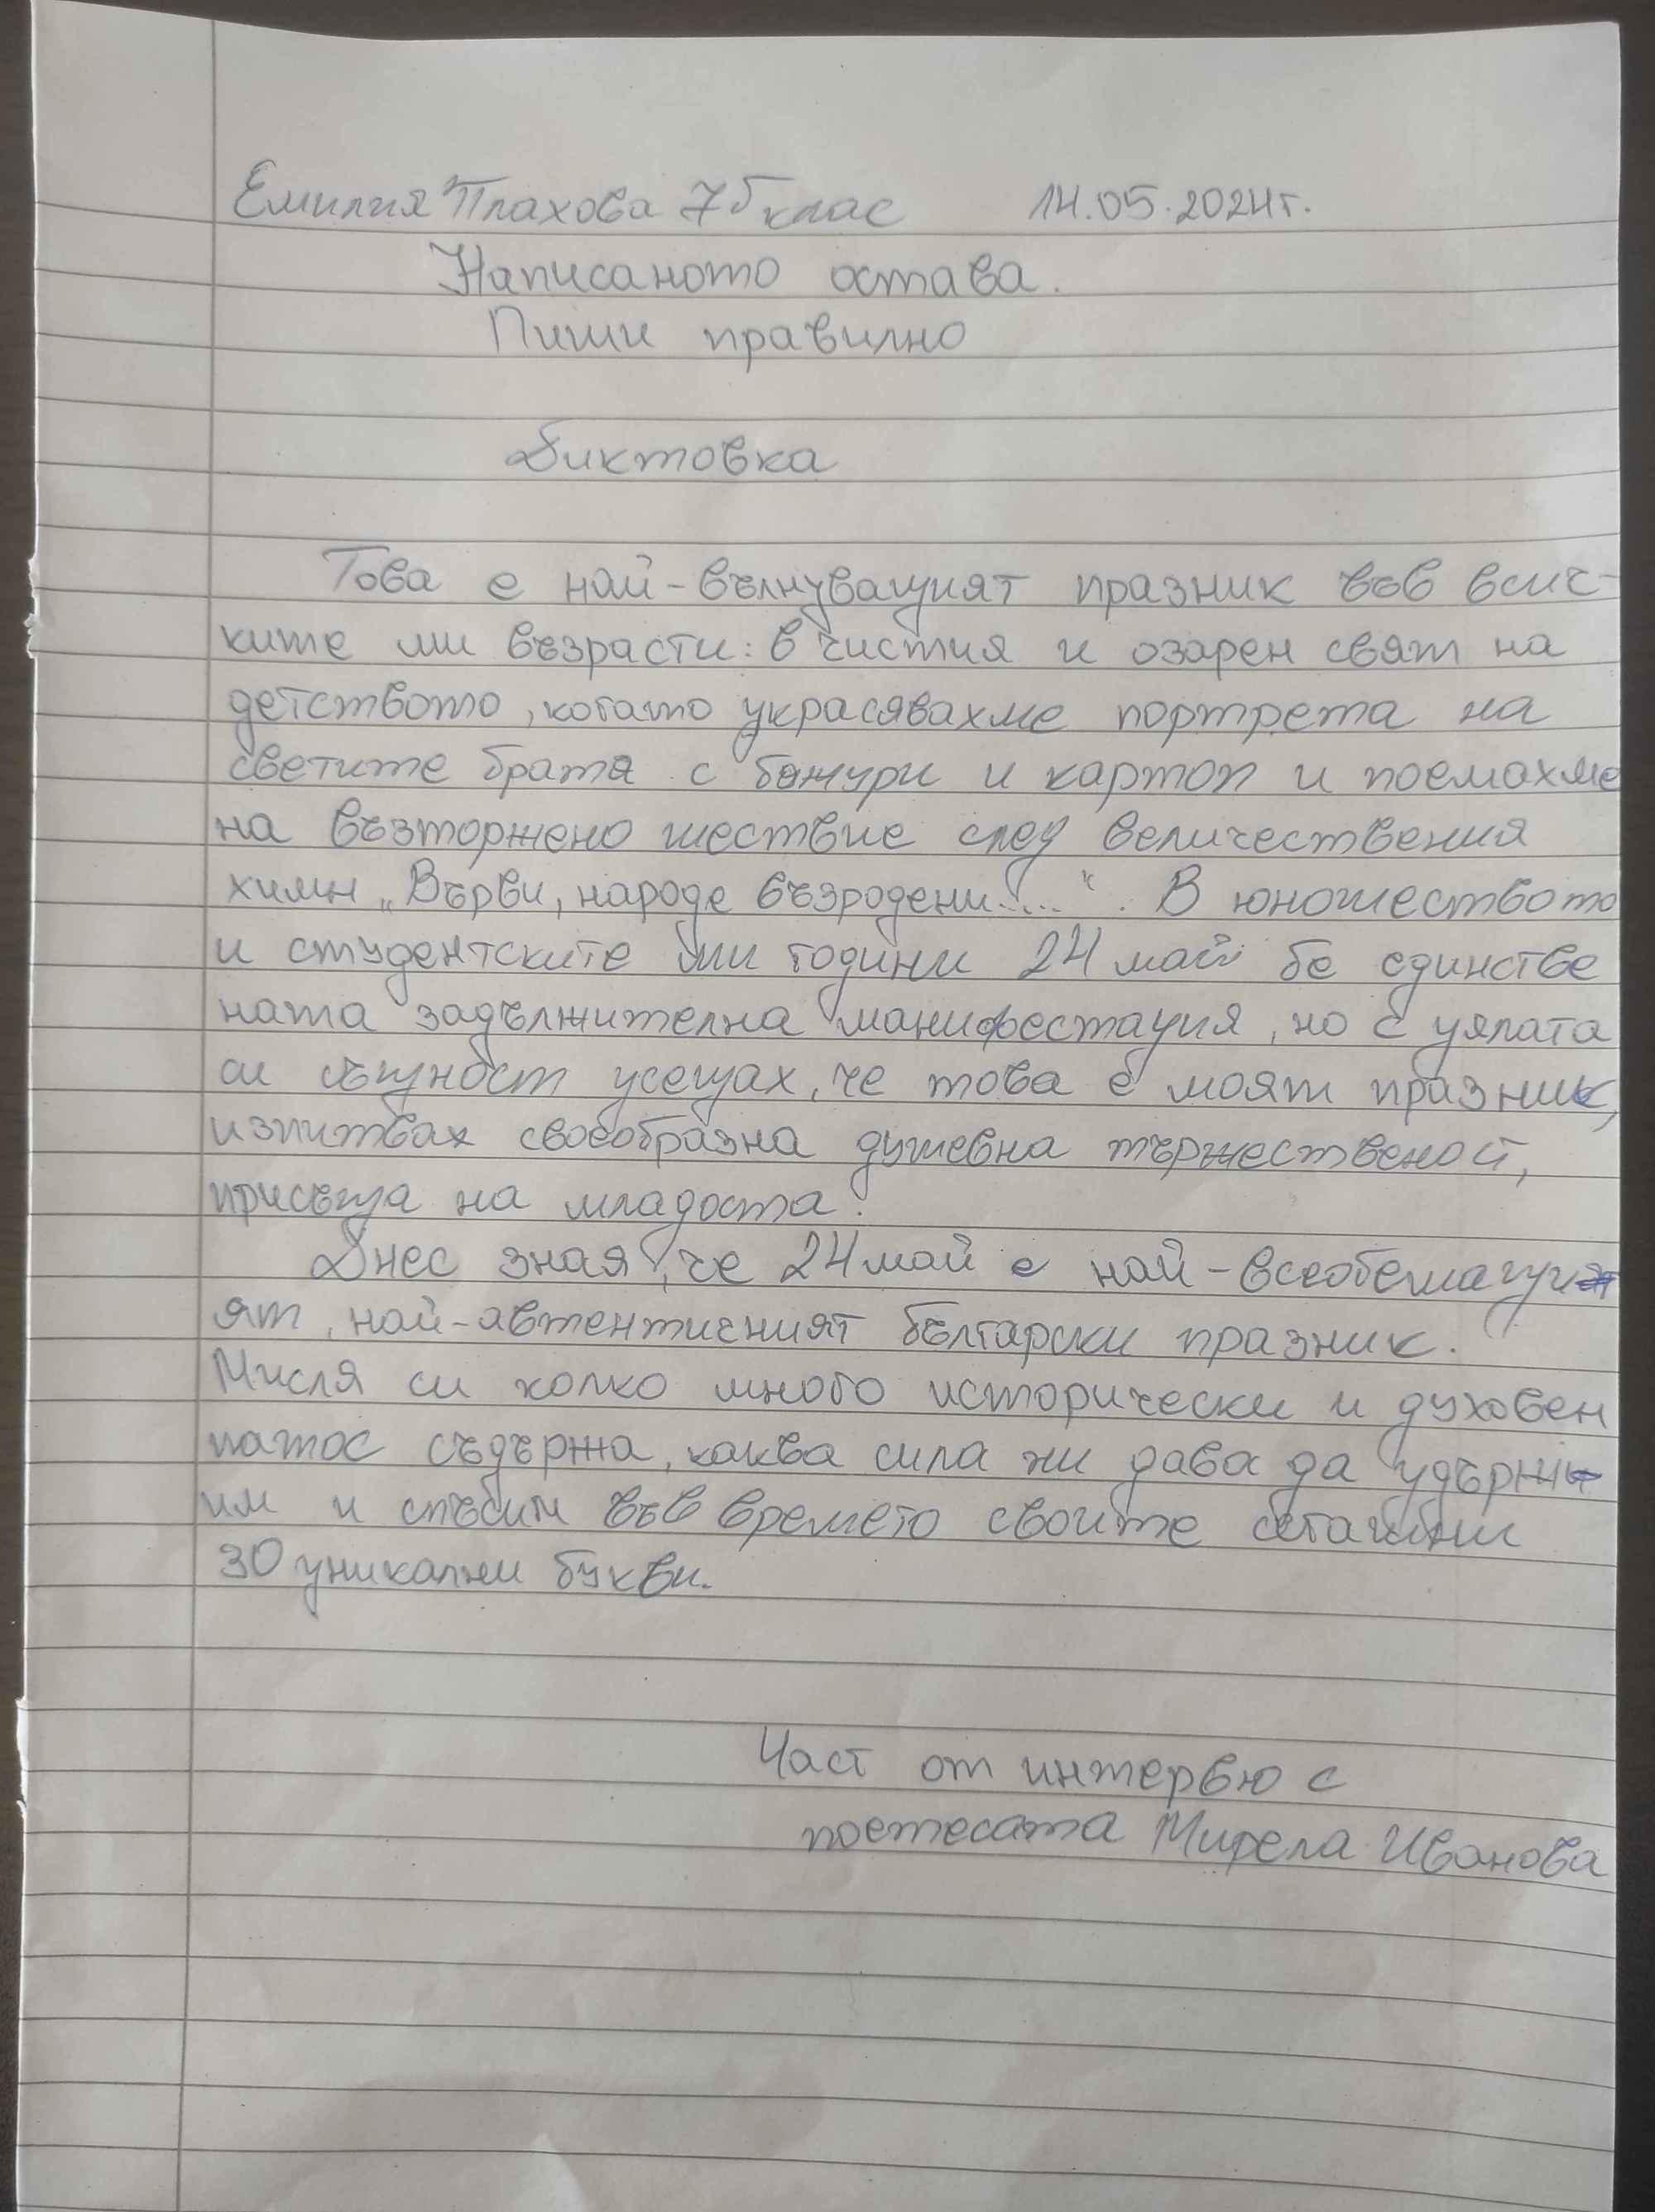 Емилия Плахова 7б клас 14.05.2024г.
Написаното остава.
Пиши правилно
Диктовка
Това е най-вълнуващият празник във всич-
ките ми възрасти: в чистия и озарен свят на
детството, когато украсявахме портрета на
светите братя с божури и картон и поемахме
на възторжено шествие след величествения
химн „Върви, народе възродени...“. В юношеството
и студентските ми години 24 май бе единстве
ната задължителна манифестация, но с цялата
си същност усещах, че това е моят празник,
изпитвах своеобразна душевна тържественост,
присъща на младоста.
Днес зная, че 24 май е най-всеобемащи
ят, най-автентичният български празник.
Мисля си колко много исторически и духовен
патос съдържа, каква сила ни дава да удърж
им и сгъбим във времето своите
30 уникални букви.
Част от интервю с
поетесата Мирела Иванова